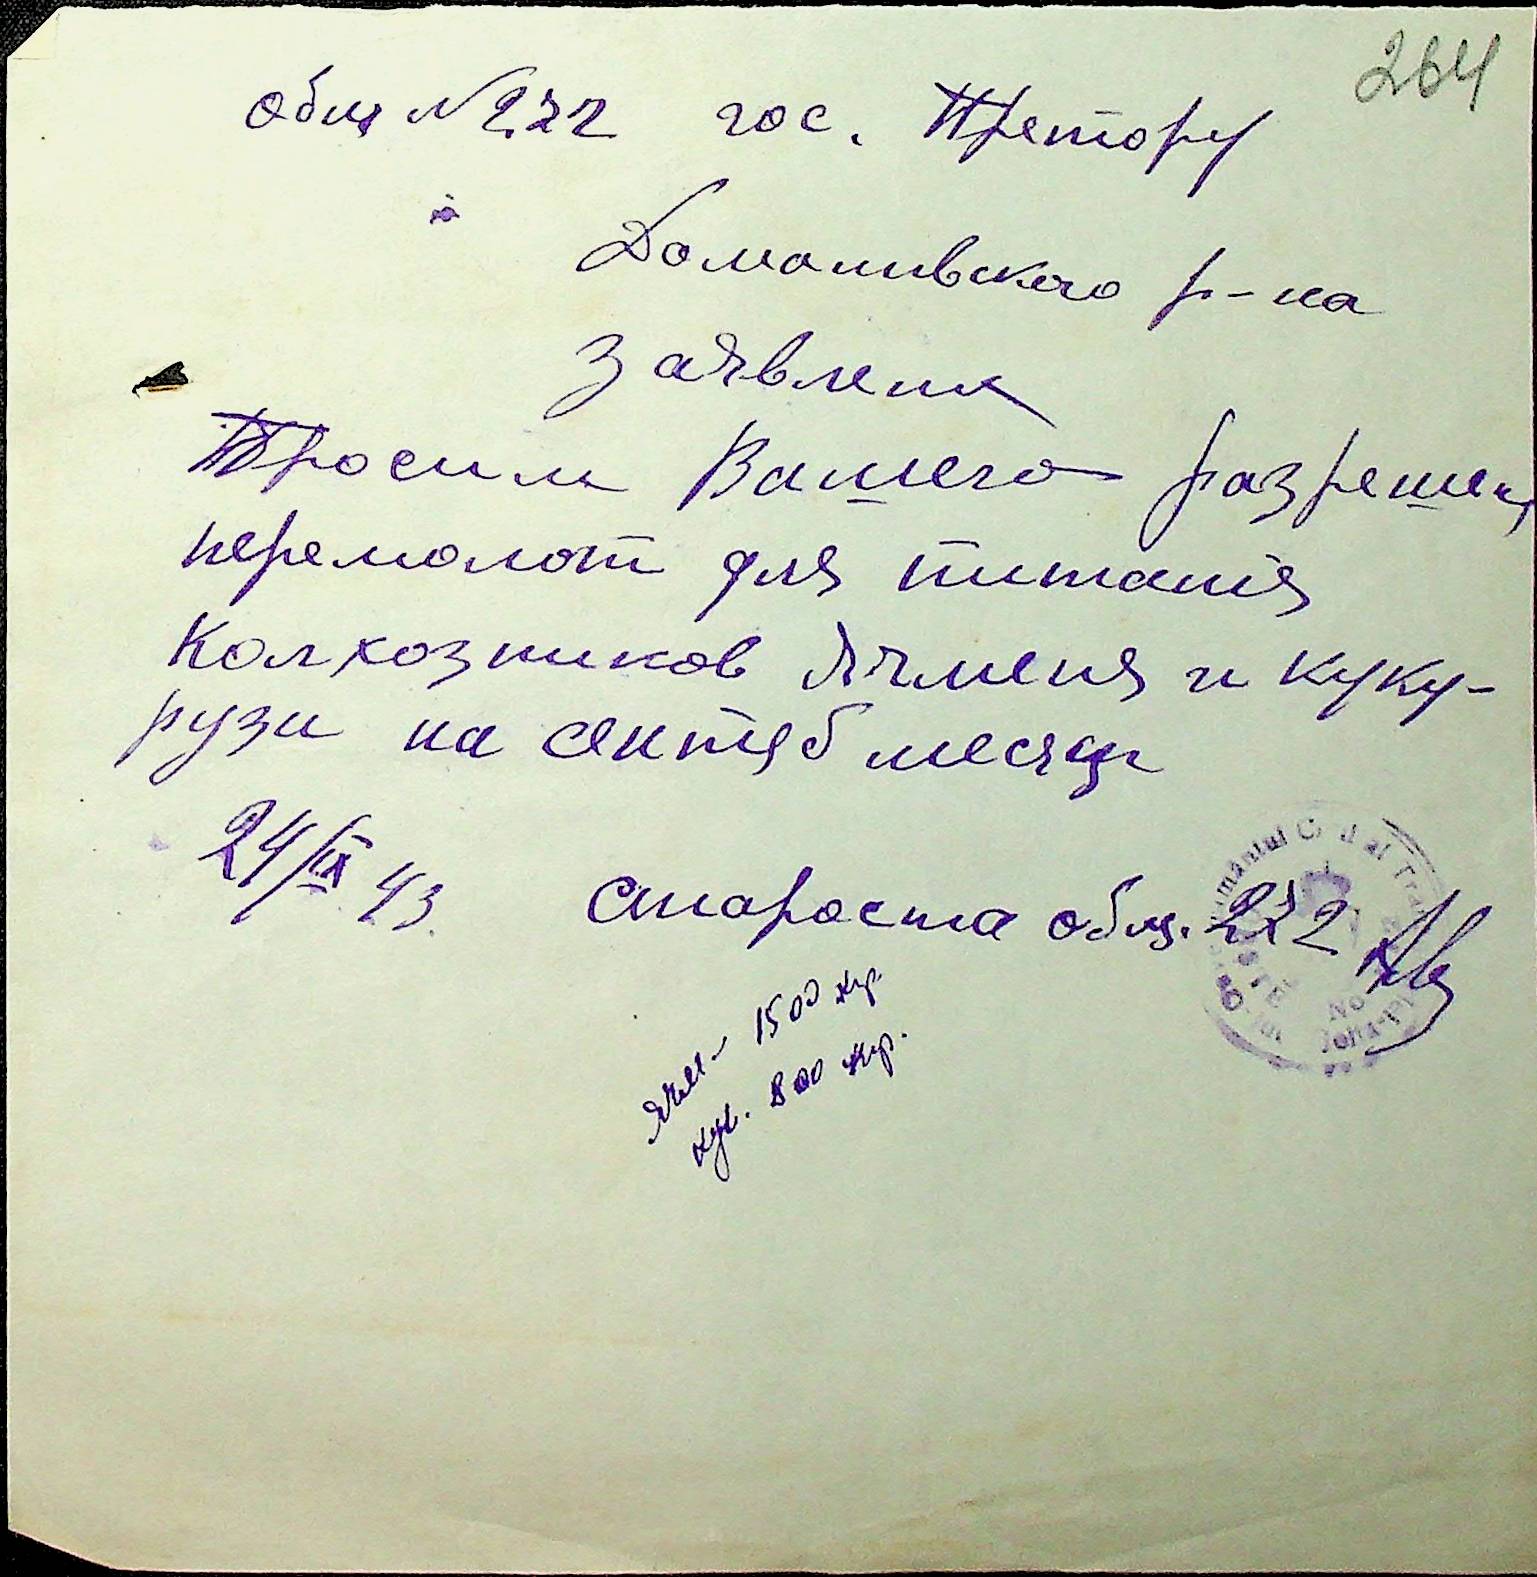 264
Общ № 222 гос. Претору
Домановского р-на
Заявление
Просим Вашего разрешен
перемолот для питания
колхозников Ячменя и куку-
рузи на октяб месяц
24/IX 43. Староста общ. 222
Ячм - 1500 кгр.
кук. 800 кгр.